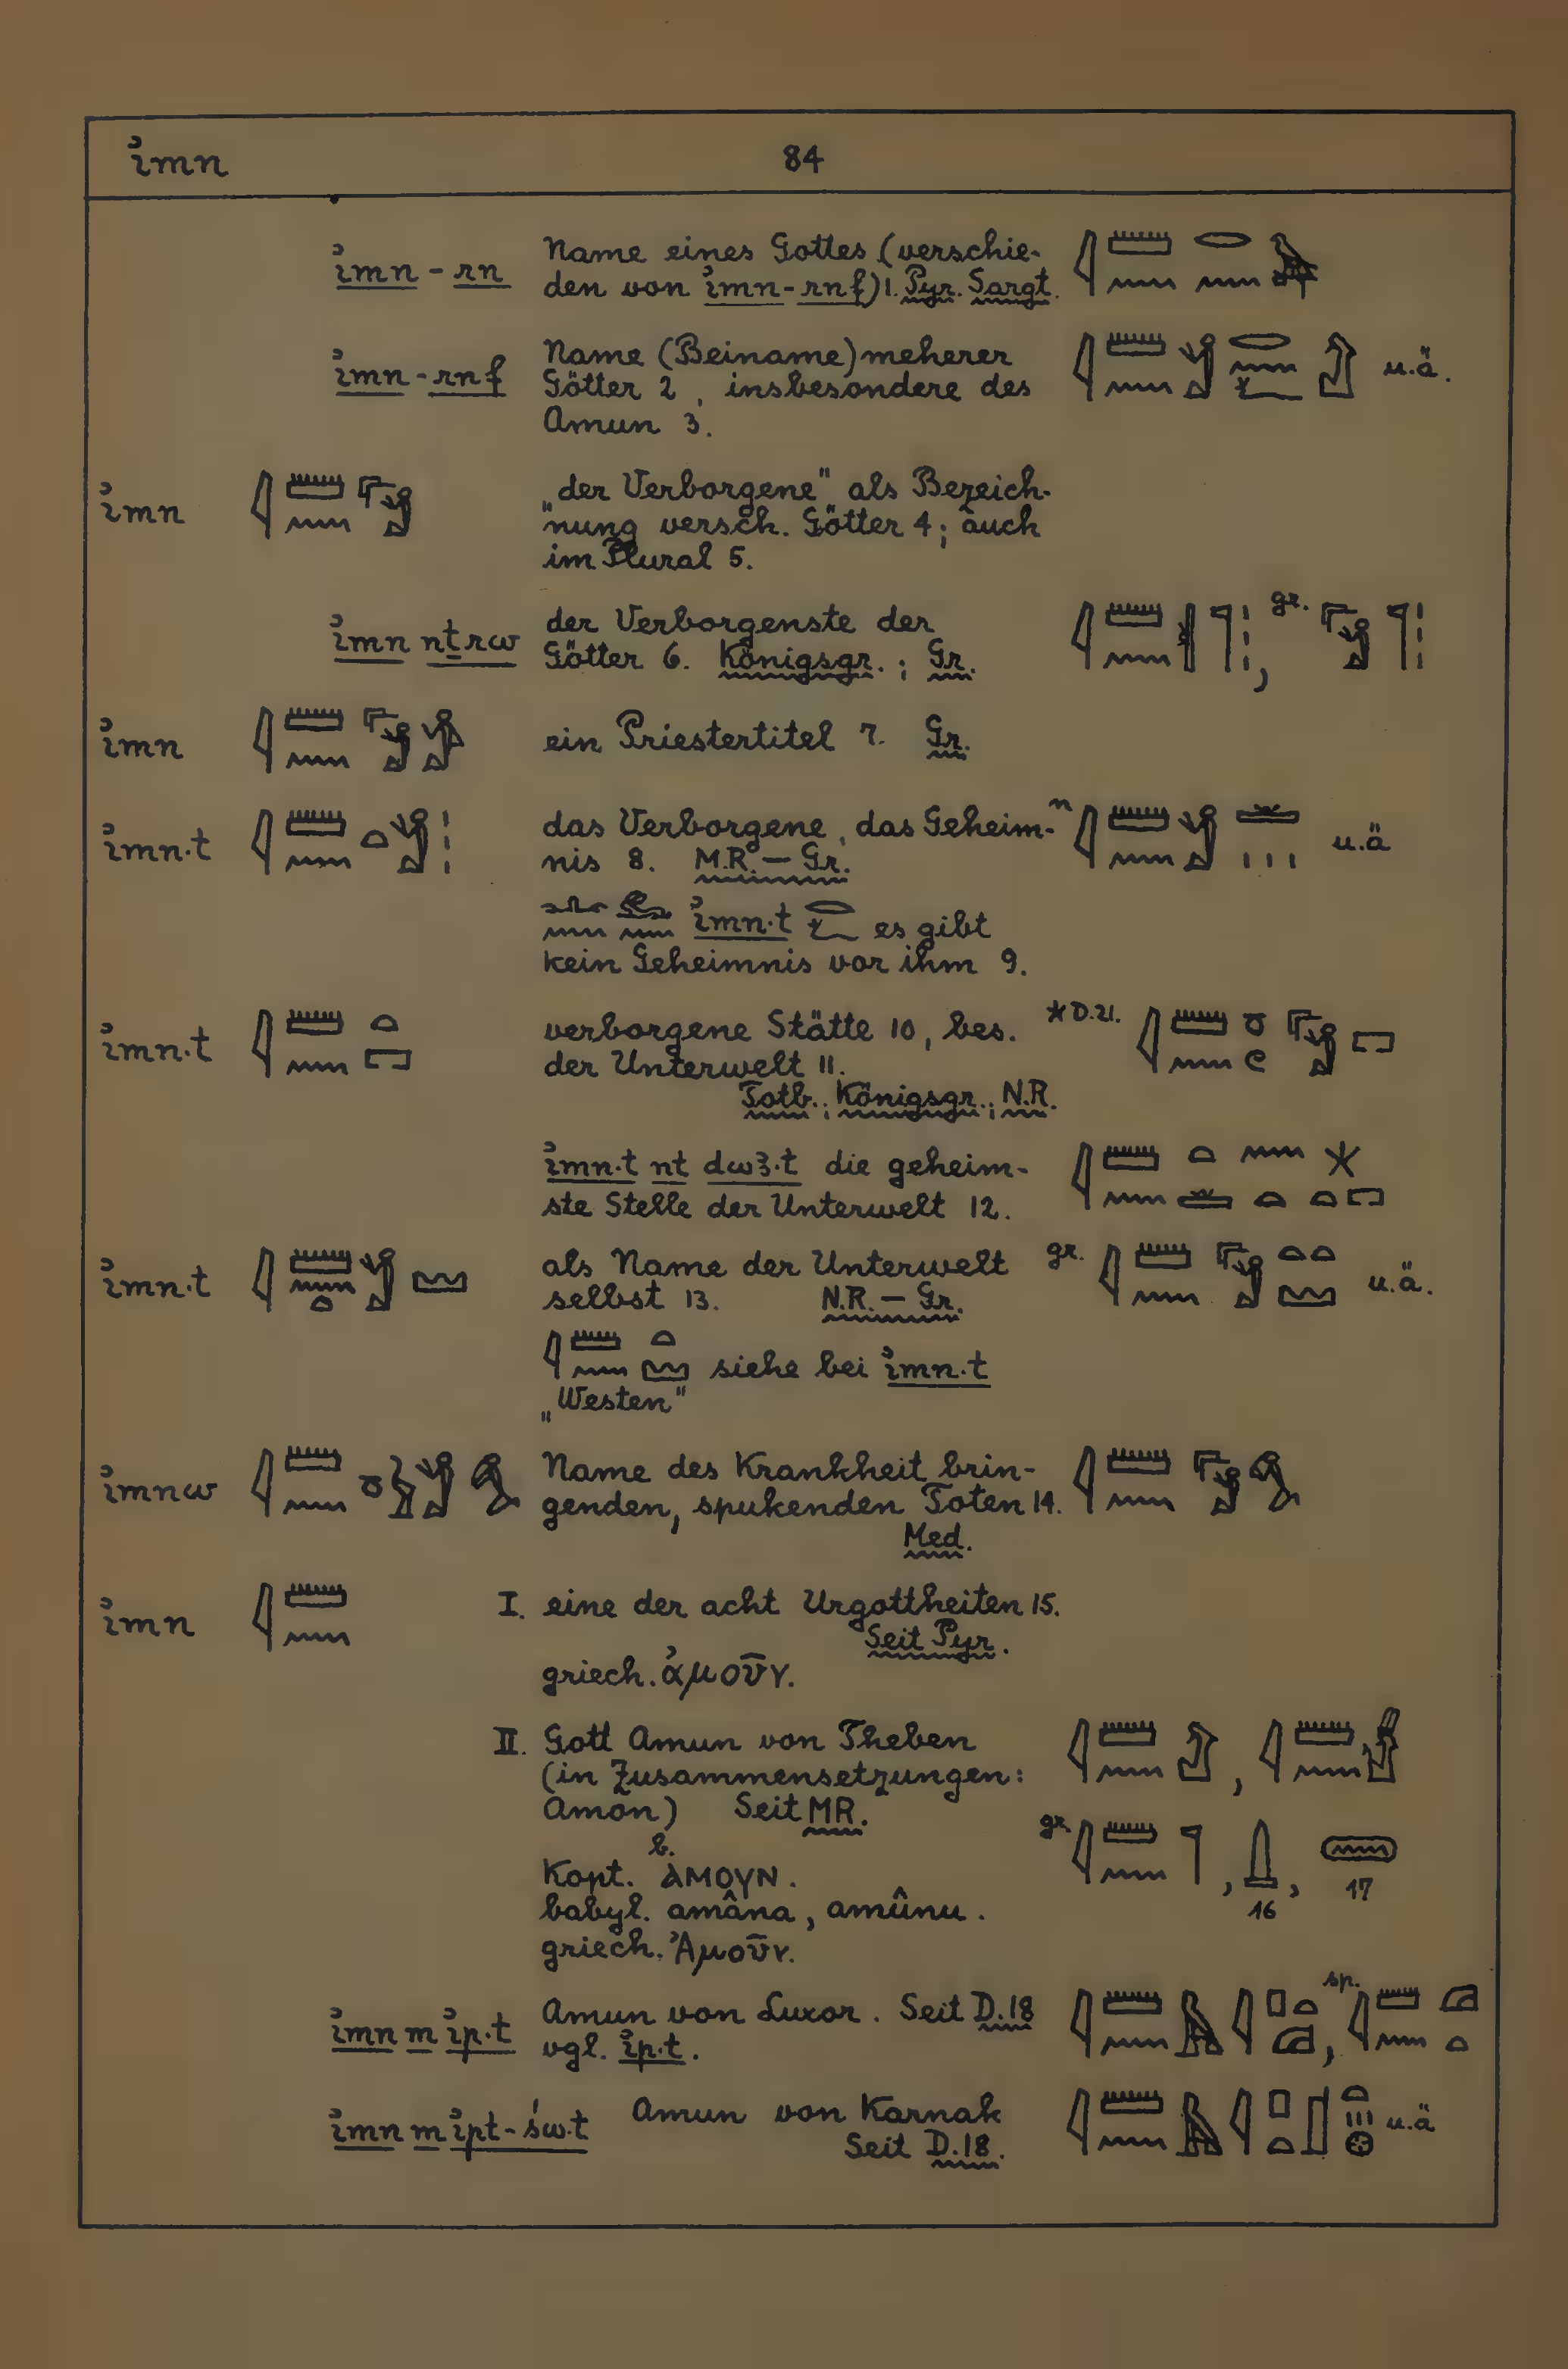 ỉmn 84
ỉmn - rn Name eines Gottes (verschie-
den von ỉmn-rnf) 1. Pyr. Sargt.
ỉmn - rnf Name (Beiname) meherer
Götter 2, insbesondere des
Amun 3.
ỉmn „der Verborgene" als Bezeich-
nung versch. Götter 4; auch
im Plural 5.
ỉmn nṯrw der Verborgenste der gr.
Götter 6. Königsgr.; Gr.
ỉmn ein Priestertitel 7. Gr.
ỉmn·t das Verborgene, das Geheim- n u.ä
nis 8. M.R. – Gr.
ỉmn·t es gibt
kein Geheimnis vor ihm 9.
ỉmn·t verborgene Stätte 10, bes. *D.21.
der Unterwelt 11.
Totb.; Königsgr.; N.R.
ỉmn·t nt dwꜣ·t die geheim-
ste Stelle der Unterwelt 12.
ỉmn·t als Name der Unterwelt gr. u.ä.
selbst 13. N.R. – Gr.
siehe bei ỉmn·t
„Westen"
ỉmnw Name des Krankheit brin-
genden, spukenden Toten 14.
Med.
ỉmn I. eine der acht Urgottheiten 15.
Seit Pyr.
griech. ἀμοῦν.
II. Gott Amun von Theben
(in Zusammensetzungen:
Amon) Seit MR.
b. gr.
Kopt. ⲁⲙⲟⲩⲛ. 16 17
babyl. amâna, amûnu.
griech. Ἀμοῦν.
ỉmn m ỉp·t Amun von Luxor. Seit D.18 sp.
vgl. ỉp·t.
ỉmn m ỉpt-św·t Amun von Karnak u.ä
Seit D.18.